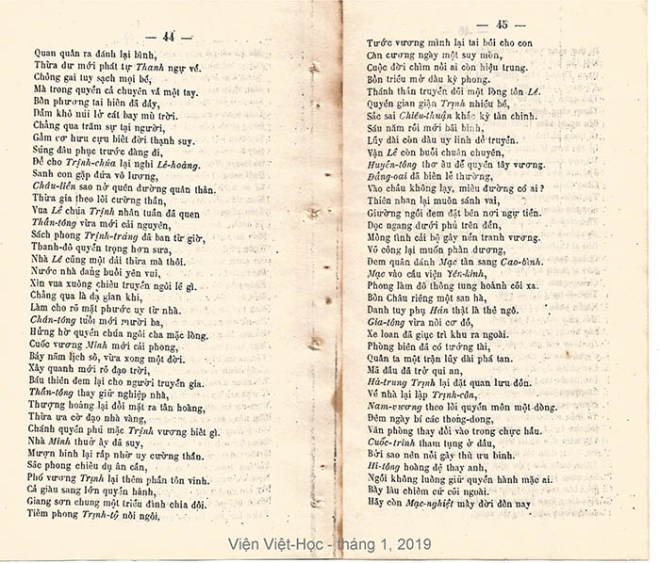 — 44 —
Quan quân ra đánh lại bình,
Thừa dư mới phát tự Thanh ngự về.
Chông gai tuy sạch mọi bề,
Mà trong quyền cả chuyên về một tay.
Bốn phương tai hiên đã đầy,
Dám khỏ núi lở cát bay mù trời.
Chẳng qua trăm sự tại người,
Gẫm cơ hưu cựu biết đời thạnh suy.
Súng đâu phục trước đàng đi,
Để cho Trịnh-chúa lại nghi Lê-hoàng.
Sanh con gặp đứa vô lương,
Châu-liễn sao nở quên đường quân thân.
Thừa gia theo lối cường thần,
Vua Lê chúa Trịnh nhân tuần đã quen
Thần-tông vừa mới cải nguyên,
Sách phong Trịnh-tráng đã ban từ giờ,
Thanh-đô quyền trọng hơn xưa,
Nhà Lê cũng một dải thừa mà thôi.
Nước nhà đang buổi yên vui,
Xin vua xuống chiếu truyền ngôi lẽ gì.
Chẳng qua là dạ gian khi,
Làm cho rõ mặt phước uy từ nhà.
Chân-tông tuổi mới mười ba,
Hững hờ quyền chúa ngôi cha mặc lòng.
Cuốc vương Minh mới cải phong,
Bảy năm lịch số, vừa xong một đời.
Xây quanh mới rõ đạo trời,
Báu thiên đem lại cho người truyền gia.
Thần-tông thay giữ nghiệp nhà,
Thượng hoàng lại đổi mặt ra tân hoàng,
Thừa ưa cờ đạo nhà vàng,
Chánh quyền phú mặc Trịnh vương biết gì.
Nhà Minh thuở ấy đã suy,
Mượn binh lại rắp nhờ uy cường thần.
Sắc phong chiêu dụ ân cần,
Phó vương Trịnh lại thêm phần tôn vinh.
Cả giàu sang lớn quyền hành,
Giang sơn chung một triều đình chia đôi.
Tiềm phong Trịnh-tộ nối ngôi,
— 45 —
Tước vương mình lại tài bồi cho con
Càn cương ngày một suy mòn,
Cuộc đời chìm nổi ai còn hiệu trung.
Bốn triều mở dấu kỳ phong.
Thánh thần truyền dõi một dòng tôn Lê.
Quyền gian giận Trịnh nhiều bề,
Sắc sai Chiêu-thuận khắc kỳ tân chinh.
Sáu năm rồi mới bãi binh,
Lũy dài còn dấu uy linh để truyền.
Vận Lê còn buổi chuân chuyên,
Huyền-tông thơ ấu để quyền tây vương.
Đảng-oai đã biến lễ thường,
Vào chầu không lạy, miếu đường có ai?
Thiên nhan lại muốn sánh vai,
Giường ngồi đem đặt bên nơi ngự tiền.
Dọc ngang dưới phủ trên đền,
Mông tình cải bộ gây nên tranh vương.
Võ công lại muốn phân dương,
Đem quân đánh Mạc tàn sang Cao-bình.
Mạc vào cầu viện Yên-kinh,
Phong làm đô thống tung hoành cõi xa.
Bốn Châu riêng một sơn hà,
Danh tuy phụ Hán thật là thẻ ngô.
Gia-tông vừa nối cơ đồ,
Xe loan đã giục trì khu ra ngoài.
Phòng biên đã có tướng tài,
Quân ta một trận lũy dài phá tan.
Mã đầu đã trở qui an,
Hà-trung Trịnh lại đặt quan lưu đồn.
Về nhà lại lập Trịnh-côn,
Nam-vương theo lối quyền môn một dòng.
Đêm ngày bí các thong-dong,
Văn phòng thay đổi vào trong chực hầu.
Cuốc-trinh tham tụng ở đầu,
Bởi sao nên nỗi gây thù ưu binh.
Hi-tông hoàng đệ thay anh,
Ngồi không luống giữ quyền hành mặc ai.
Bảy lâu chiếm cứ cõi ngoài.
Hãy còn Mạc-nghiệt mảy đời đồn nay
Viện Việt-Học - tháng 1, 2019